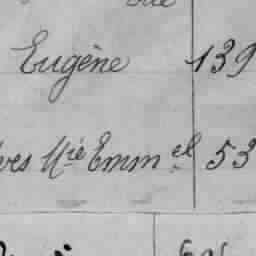 Eugène 139
ves Mie Emm el 53